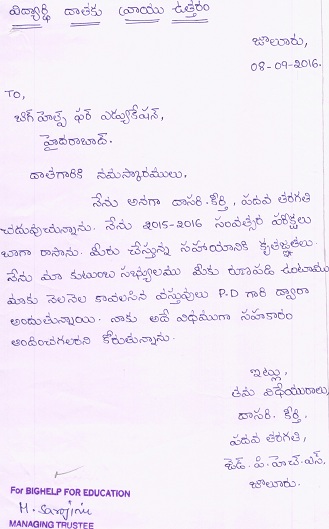 విద్యార్థి దాతకు వ్రాయు ఉత్తరం
జూలూరు,
08-09-2016.
TO,
బిగ్ హెల్ప్ ఫర్ ఎడ్యుకేషన్,
హైదరాబాద్.
దాతగారికి నమస్కారములు.
నేను అనగా దాసరి.కీర్తి, పదవ తరగతి
చదువుచున్నాను. నేను 2015-2016 సంవత్సర పరీక్షలు
బాగా రాసాను. మీరు చేస్తున్న సహాయానికి కృతజ్ఞతలు.
నేను మా కుటుంబ సభ్యులము మీకు రుణపడి ఉంటాము
మాకు నెలనెల కావలసిన వస్తువులు P.D గారి ద్వారా
అందుతున్నాయి. నాకు అదే విధముగా సహకారం
అందించగలరని కోరుతున్నాను.
ఇట్లు,
తమ విధేయురాలు,
దాసరి. కీర్తి.
పదవ తరగతి,
జెడ్. పి. హెచ్. ఎస్,
జూలూరు.
For BIGHELP FOR EDUCATION
M. Sarojini
MANAGING TRUSTEE